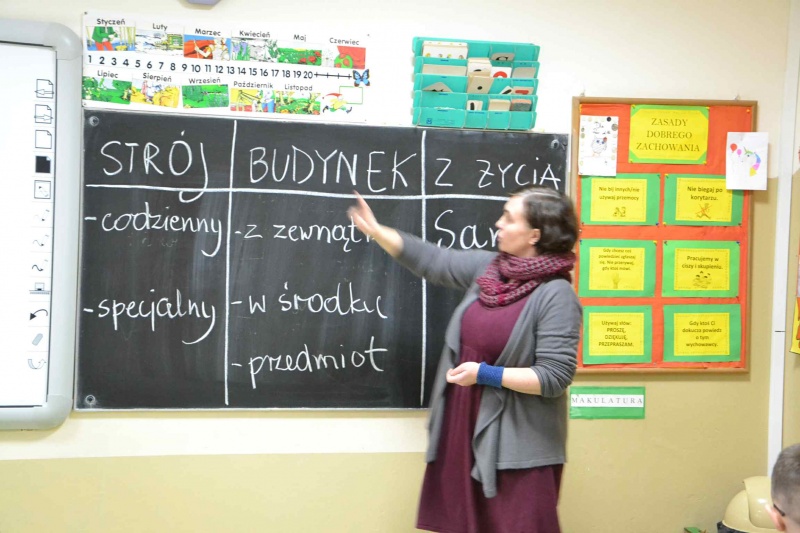 Styczeń Luty Marzec Kwiecień Maj Czerwiec
1 2 3 4 5 6 7 8 9 10 11 12 13 14 15 16 17 18 19 20
Lipiec Sierpień Wrzesień Październik Listopad
STRÓJ
- codzienny
- specjalny
BUDYNEK
- z zewnątr
- w środku
- przedmiot
Z ŻYCIA
ZASADY
DOBREGO
ZACHOWANIA
Nie bij innych/nie
używaj przemocy
Nie biegaj po
korytarzu.
Gdy chcesz coś
powiedzieć zgłoś
się. Nie przerywaj,
gdy ktoś mówi.
Pracujemy w
ciszy i skupieniu.
Używaj słów:
PROSZĘ,
DZIĘKUJĘ,
PRZEPRASZAM.
Gdy ktoś Ci
dokucza powiedz
o tym
wychowawcy.
MAKULATURA